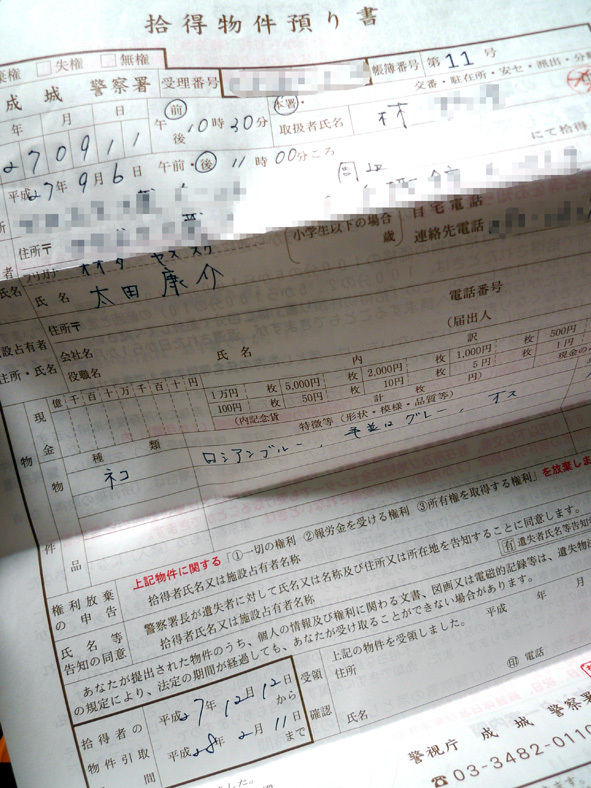 拾得物件預り書
棄権 □失権 □無権
成城 警察署 受理番号 帳簿番号 第11号
交番・駐在所・安セ・派出・分
年 月 日 午 前 後 10時30分 本署・ 取扱者氏名 林
270911
平成27年9月6日 午前・後 11時00分ころ
にて拾得
住所〒
小学生以下の場合 歳
自宅電話
連絡先電話
氏名 太田康介
住所〒
会社名
役職名
氏名
電話番号
(届出人
住所・氏名
現金
億 千 百 十 万 千 百 十 円
内 訳
1万円 枚 5,000円 枚 2,000円 枚 1,000円 枚 500円
100円 枚 50円 枚 10円 枚 5円 枚 1円
(内記念貨 計 枚 円)
現金の
物件
物品
種類
特徴等(形状・模様・品質等)
ネコ
ロシアンブルー、手並はグレー、オス
権利放棄の申告
上記物件に関する「①一切の権利 ②報労金を受ける権利 ③所有権を取得する権利」を放棄しま
拾得者氏名又は施設占有者名称
氏名等告知の同意
警察署長が遺失者に対して氏名又は名称及び住所又は所在地を告知することに同意します。
拾得者氏名又は施設占有者名称
有 遺失者氏名等告知
あなたが提出された物件のうち、個人の情報及び権利に関わる文書、図画又は電磁的記録等は、遺失物法
の規定により、法定の期間が経過しても、あなたが受け取ることができない場合があります。
拾得者の物件引取期間
平成27年12月12日から
平成28年2月11日まで
受領確認
上記の物件を受領しました。 平成 年 月
住所
氏名
印 電話
警視庁 成城 警察
☎03-3482-0110